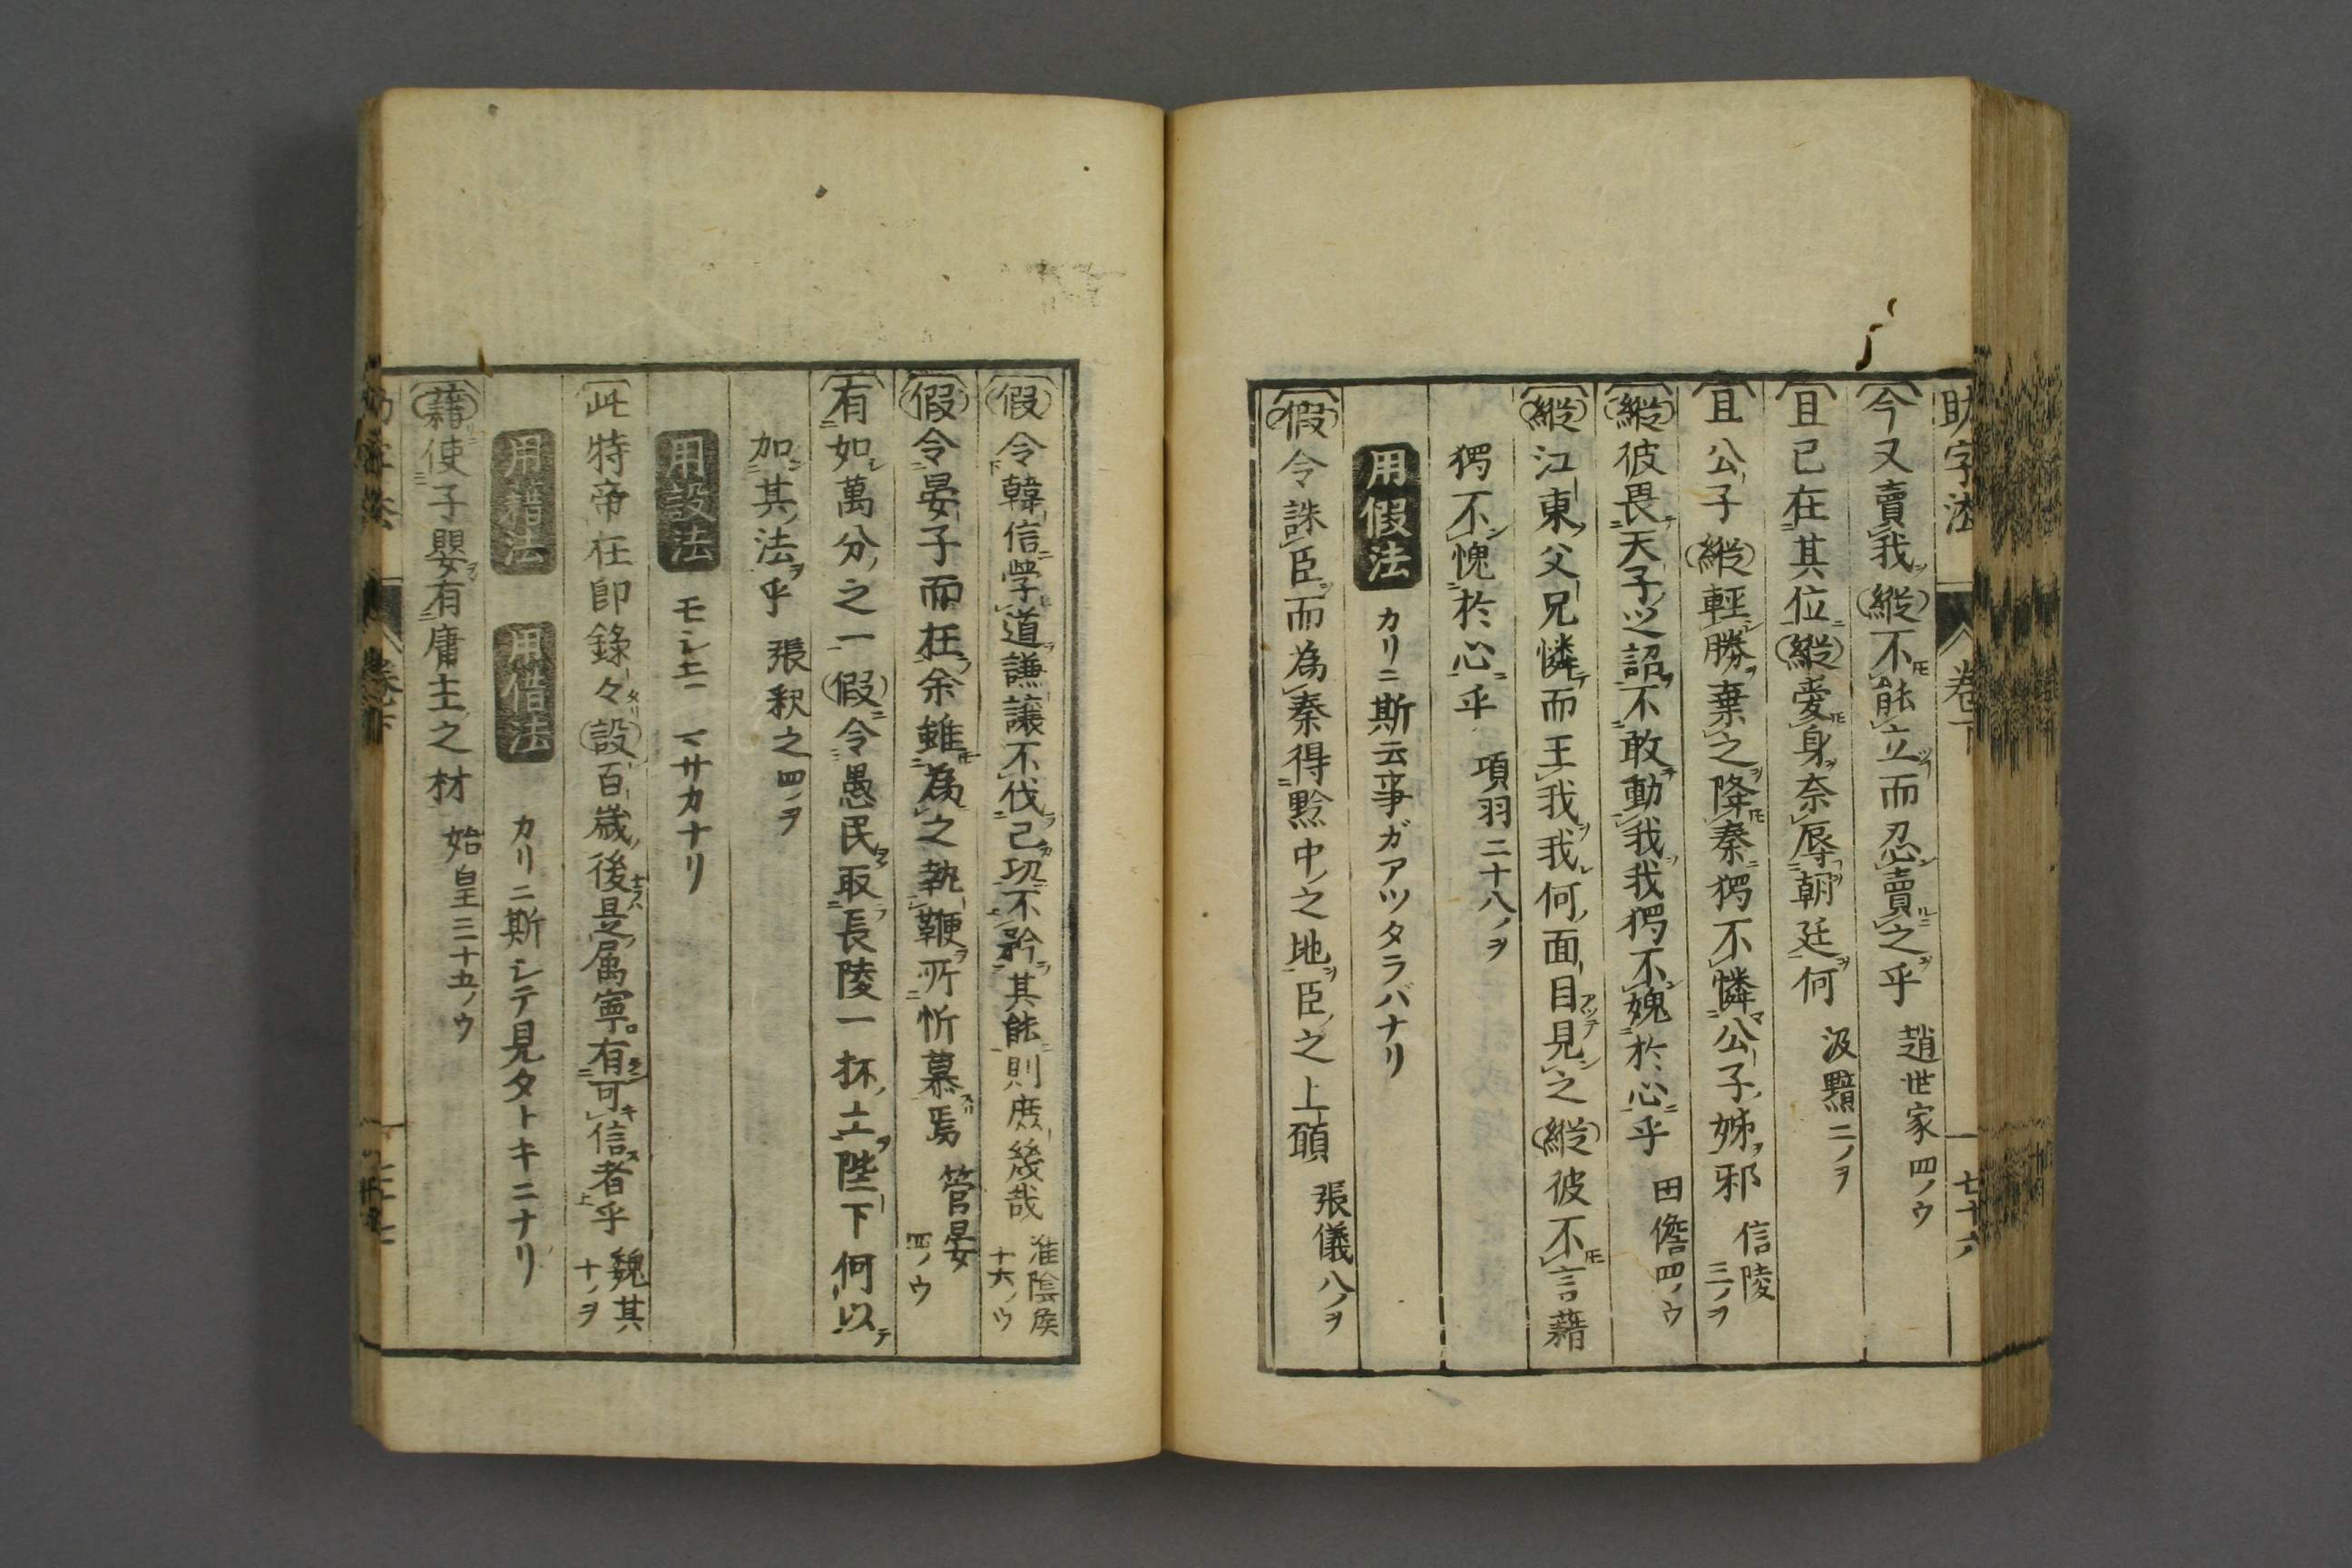 助字法 卷下 七十六
今又賣我縱不能立而忍賣之乎 趙世家四ノウ
且已在其位縱愛身奈辱朝廷何 汲黯二ノヲ
且公子縱輕勝棄之降秦獨不憐公子姊邪 信陵三ノヲ
縱彼畏天子之詔不敢動我我獨不媿於心乎 田儋四ノウ
縱江東父兄憐而王我我何面目見之縱彼不言藉
獨不愧於心乎 項羽二十八ノヲ
用假法 カリニ斯云事ガアツタラバナリ
假令誅臣而為秦得黔中之地臣之上願 張儀八ノヲ
假令韓信學道謙讓不伐己功不矜其能則庶幾哉 淮陰侯十六ノウ
假令晏子而在余雖為之執鞭所忻慕焉 管晏四ノウ
有如萬分之一假令愚民取長陵一抔土陛下何以
加其法乎 張釈之四ノヲ
用設法 モシモニ マサカナリ
此特帝在即錄々設百歲後是属寧有可信者乎 魏其十ノヲ
用藉法 用借法 カリニ斯シテ見タトキニナリ
藉使子嬰有庸主之材 始皇三十五ノウ
助字法 卷下